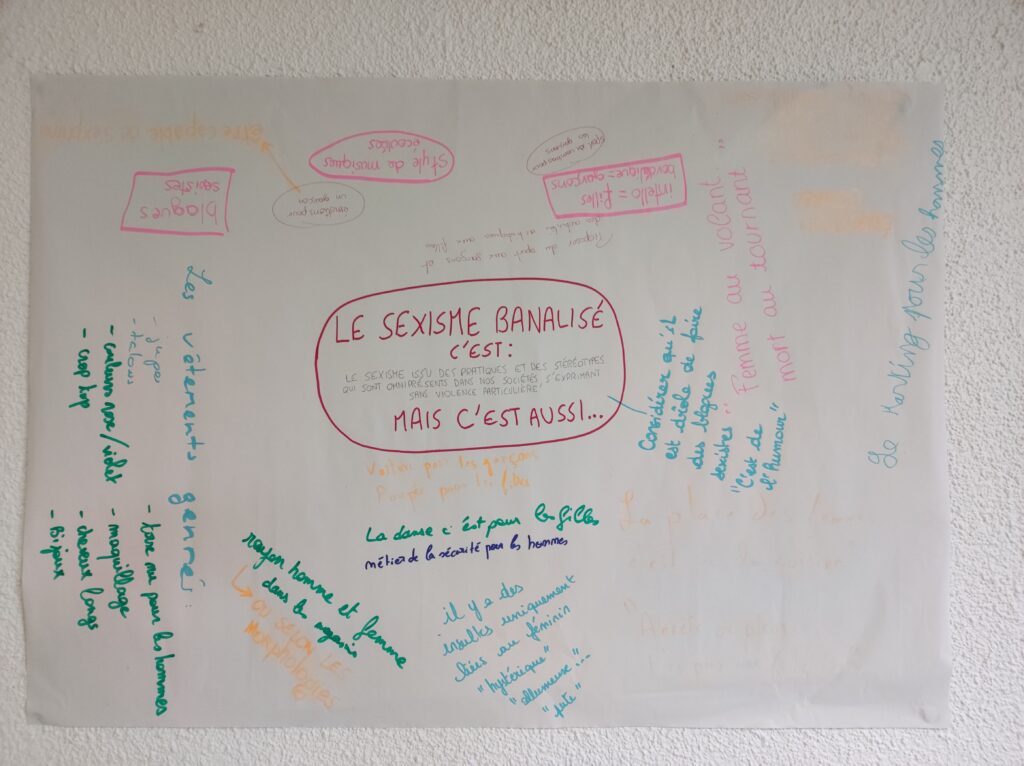 LE SEXISME BANALISÉ
C'EST :
LE SEXISME ISSU DES PRATIQUES ET DES STÉRÉOTYPES
QUI SONT OMNIPRÉSENTS DANS NOS SOCIÉTÉS, S'EXPRIMANT
SANS VIOLENCE PARTICULIÈRE
MAIS C'EST AUSSI...
Être capable de s'exprimer
style de musiques
écoutées
blagues
sexistes
un garçon
intello = filles
garçons
Proposer du sport aux garçons et
des activités artistiques aux filles
Femme au volant...
mort au tournant"
Le Marking pour les hommes
Considérer qu'il
est drôle de faire
des blagues
sexistes :
"C'est de
l'humour"
Les vêtements genrés :
- jupe
- talons
- couleurs rose/violet
- crop top
- torse nu pour les hommes
- maquillage
- cheveux longs
- Bijoux
Voiture pour les garçons
Poupée pour les filles
La danse c'est pour les filles
métier de la sécurité pour les hommes
rayon homme et femme
dans les magasins
OU SELON LES
MORPHOLOGIES
il y a des
insultes uniquement
liées au féminin
"hystérique"
"allumeuse"...
"pute"
La place des femmes
c'est à la cuisine